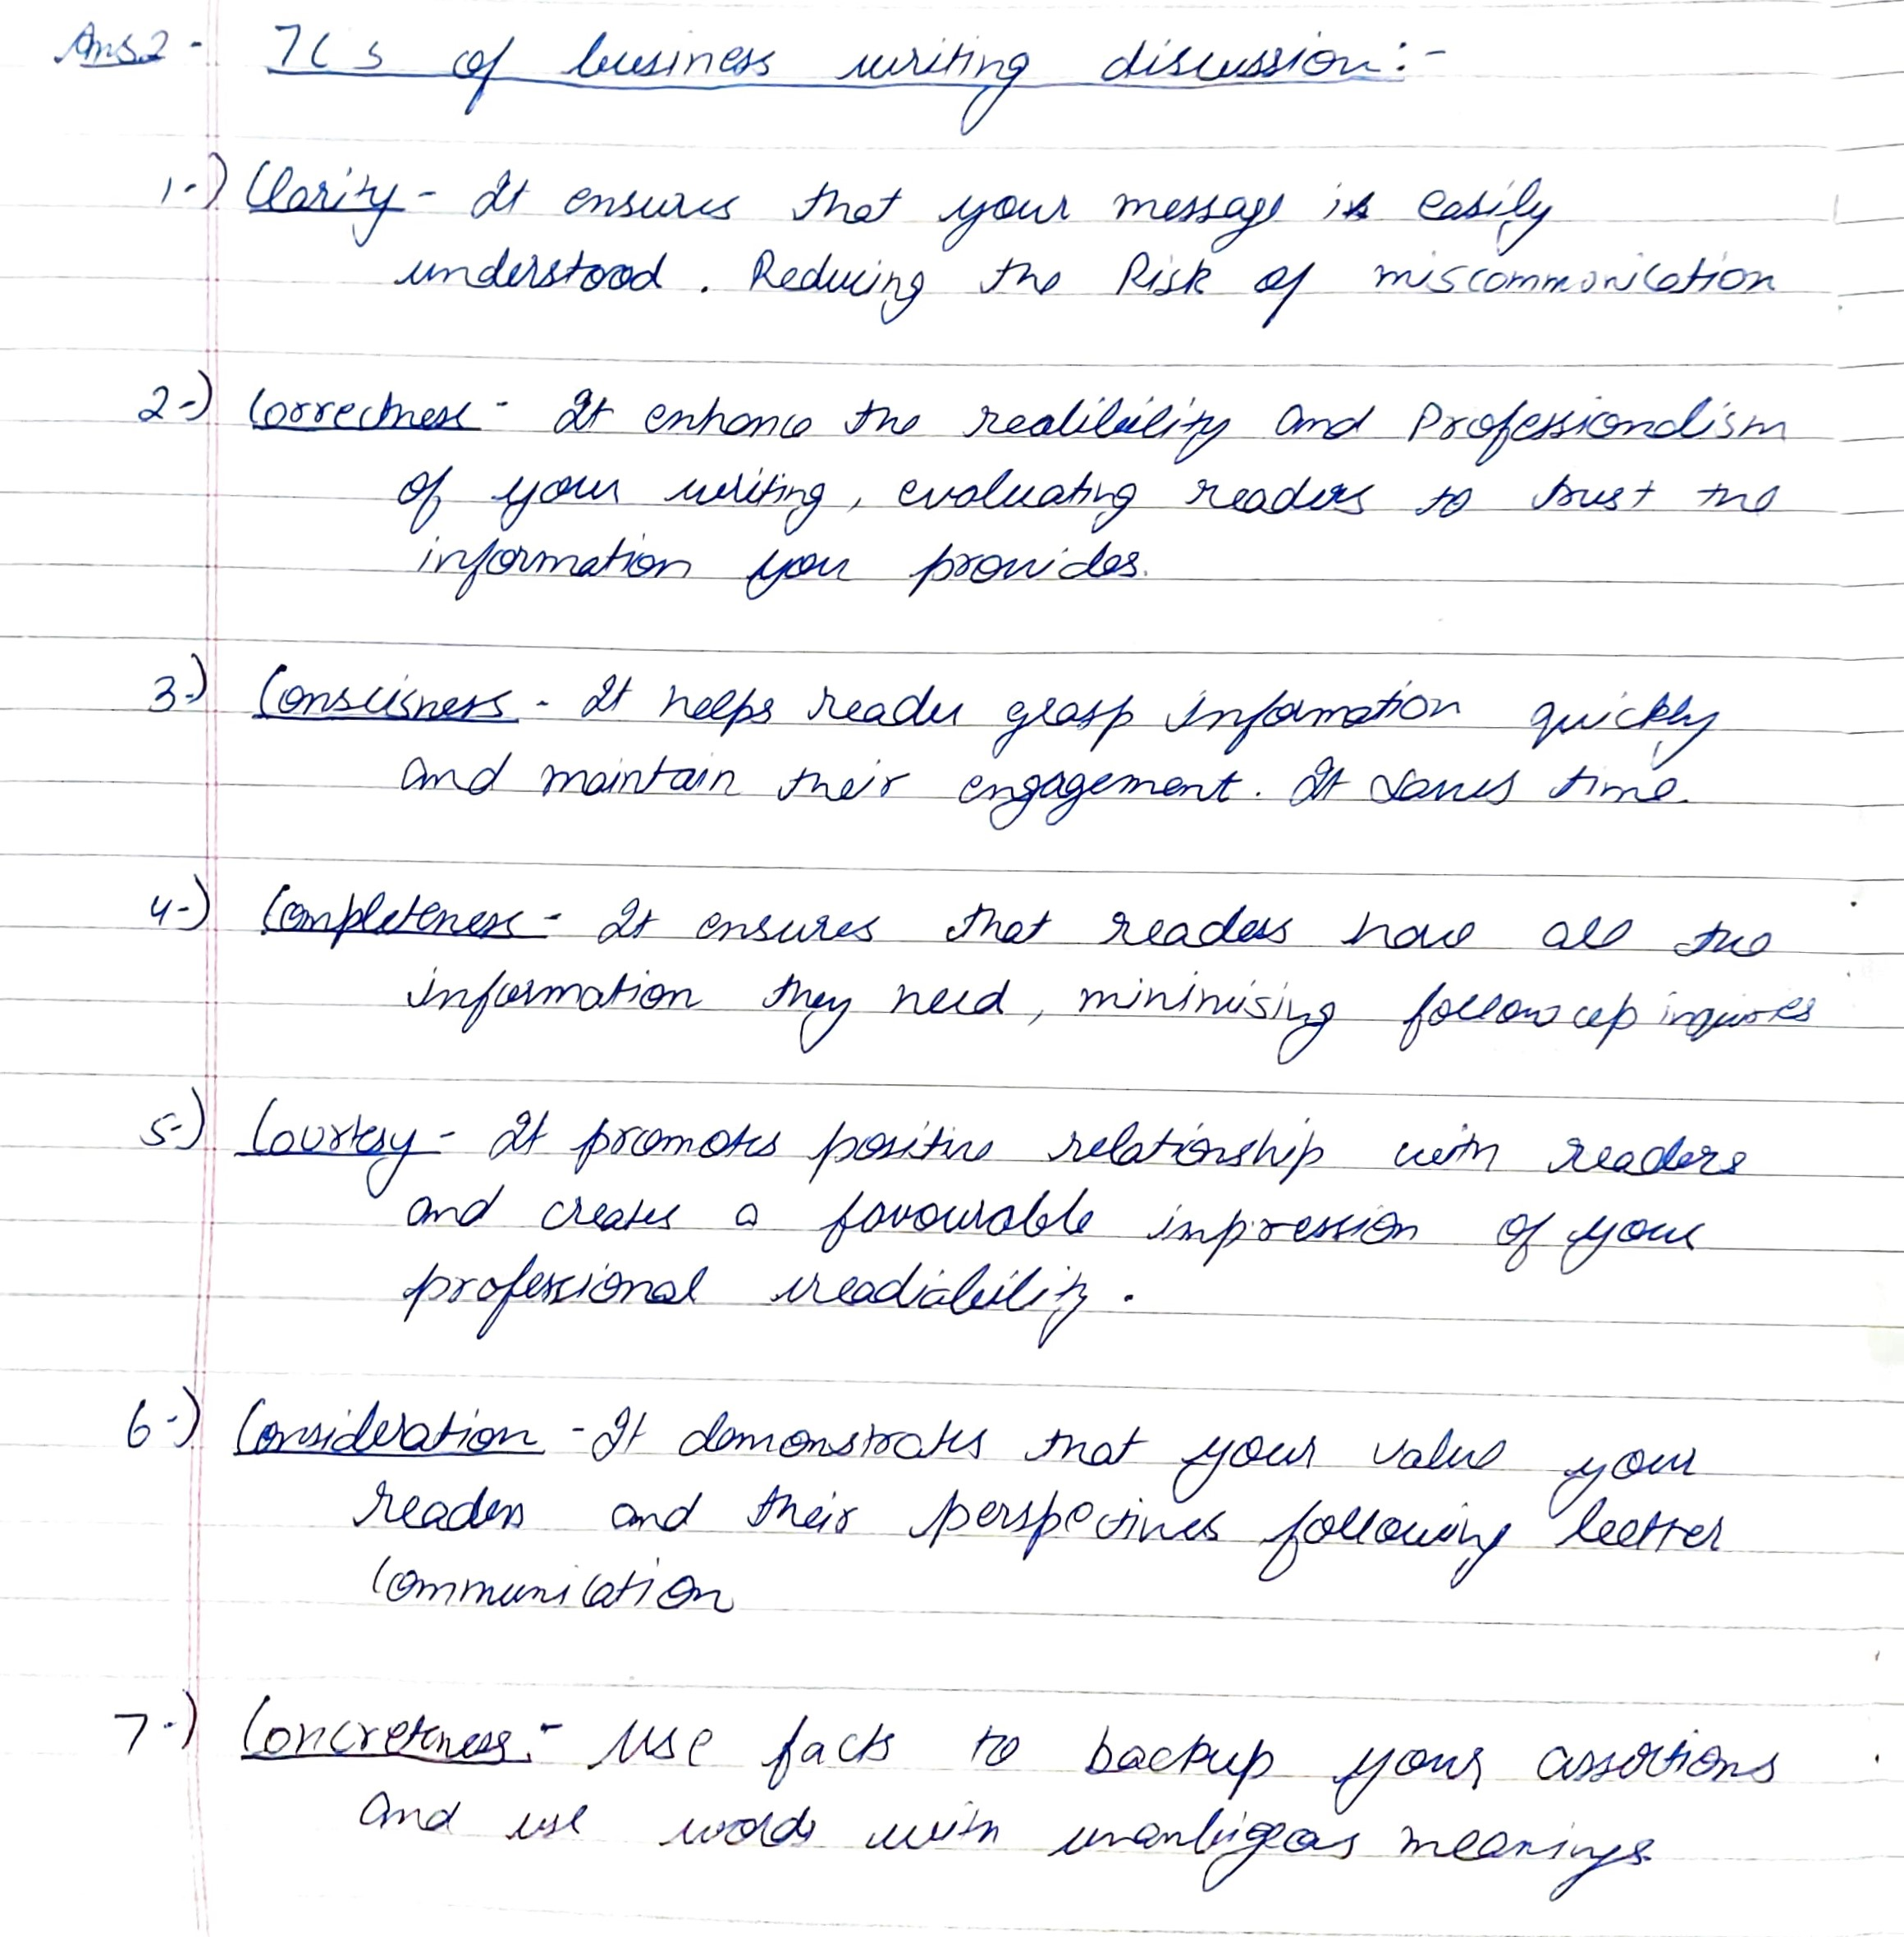 Ans2 - 7Cs of business writing discussion:-
1-) Clarity - It ensures that your message is easily
understood. Reducing the Risk of miscommunication
2-) Correctness - It enhance the realibility and Professionalism
of your writing, evaluating readers to trust the
information you provides.
3-) Consciisness - It helps reader grasp information quickly
and maintain their engagement. It saves time.
4-) Completeness - It ensures that readers have all the
information they need, minimising follow up inquiries
5-) Courtesy - It promotes positive relationship with readers
and creates a favourable impression of your
professional
6-) Consideration - It demonstrates that your value your
readers and their perspectives following better
Communication
7-) Concreteness:- Use facts to backup your assertions
and use words with unambigeous meanings.